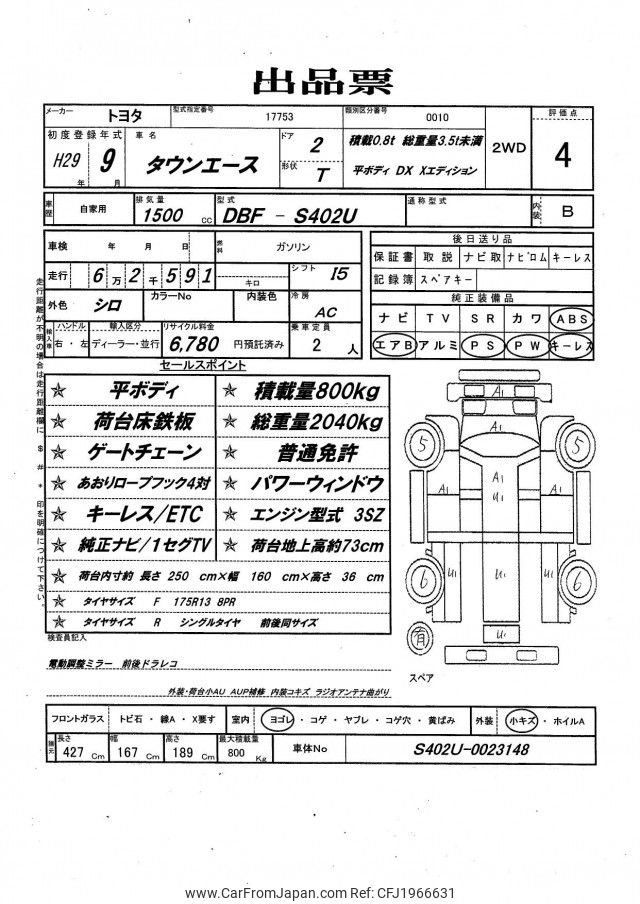 出品票
メーカー トヨタ 型式指定番号 17753 類別区分番号 0010 評価点
初度登録年式 車名 ドア 2 積載0.8t 総重量3.5t未満 2WD 4
H29 年 9 月 タウンエース 形状 T 平ボディ DX Xエディション
車歴 自家用 排気量 1500 cc 型式 DBF - S402U 通称型式 内装 B
車検 年 月 日 燃料 ガソリン
走行 6万2千591 キロ シフト I5
外色 シロ カラーNo 内装色 冷房 AC
輸入車 ハンドル 右・左 輸入区分 ディーラー・並行 リサイクル料金 6,780 円預託済み 乗車定員 2 人
後日送り品
保証書 取説 ナビ取 ナビロム キーレス
記録簿 スペアキー
純正装備品
ナビ TV SR カワ ABS
エアB アルミ PS PW キーレス
走行距離が不明の場合は走行距離欄に $ # * 印を明確につけて下さい。
セールスポイント
☆ 平ボディ ☆ 積載量800kg
☆ 荷台床鉄板 ☆ 総重量2040kg
☆ ゲートチェーン ☆ 普通免許
☆ あおりロープフック4対 ☆ パワーウィンドウ
☆ キーレス/ETC ☆ エンジン型式 3SZ
☆ 純正ナビ/1セグTV ☆ 荷台地上高約73cm
☆ 荷台内寸約 長さ 250 cm×幅 160 cm×高さ 36 cm
☆ タイヤサイズ F 175R13 8PR
☆ タイヤサイズ R シングルタイヤ 前後同サイズ
A1
A1
5 5
A1 A1 A1
U1
6 U1 U1 U1 6
有 U1
スペア
検査員記入
電動調整ミラー 前後ドラレコ
外装・荷台小AU AUP補修 内装コキズ ラジオアンテナ曲がり
フロントガラス トビ石・線A・X要す 室内 ヨゴレ・コゲ・ヤブレ・コゲ穴・黄ばみ 外装 小キズ・ホイルA
諸元 長さ 427 Cm 幅 167 Cm 高さ 189 Cm 最大積載量 800 Kg 車体No S402U-0023148
www.CarFromJapan.com Ref: CFJ1966631